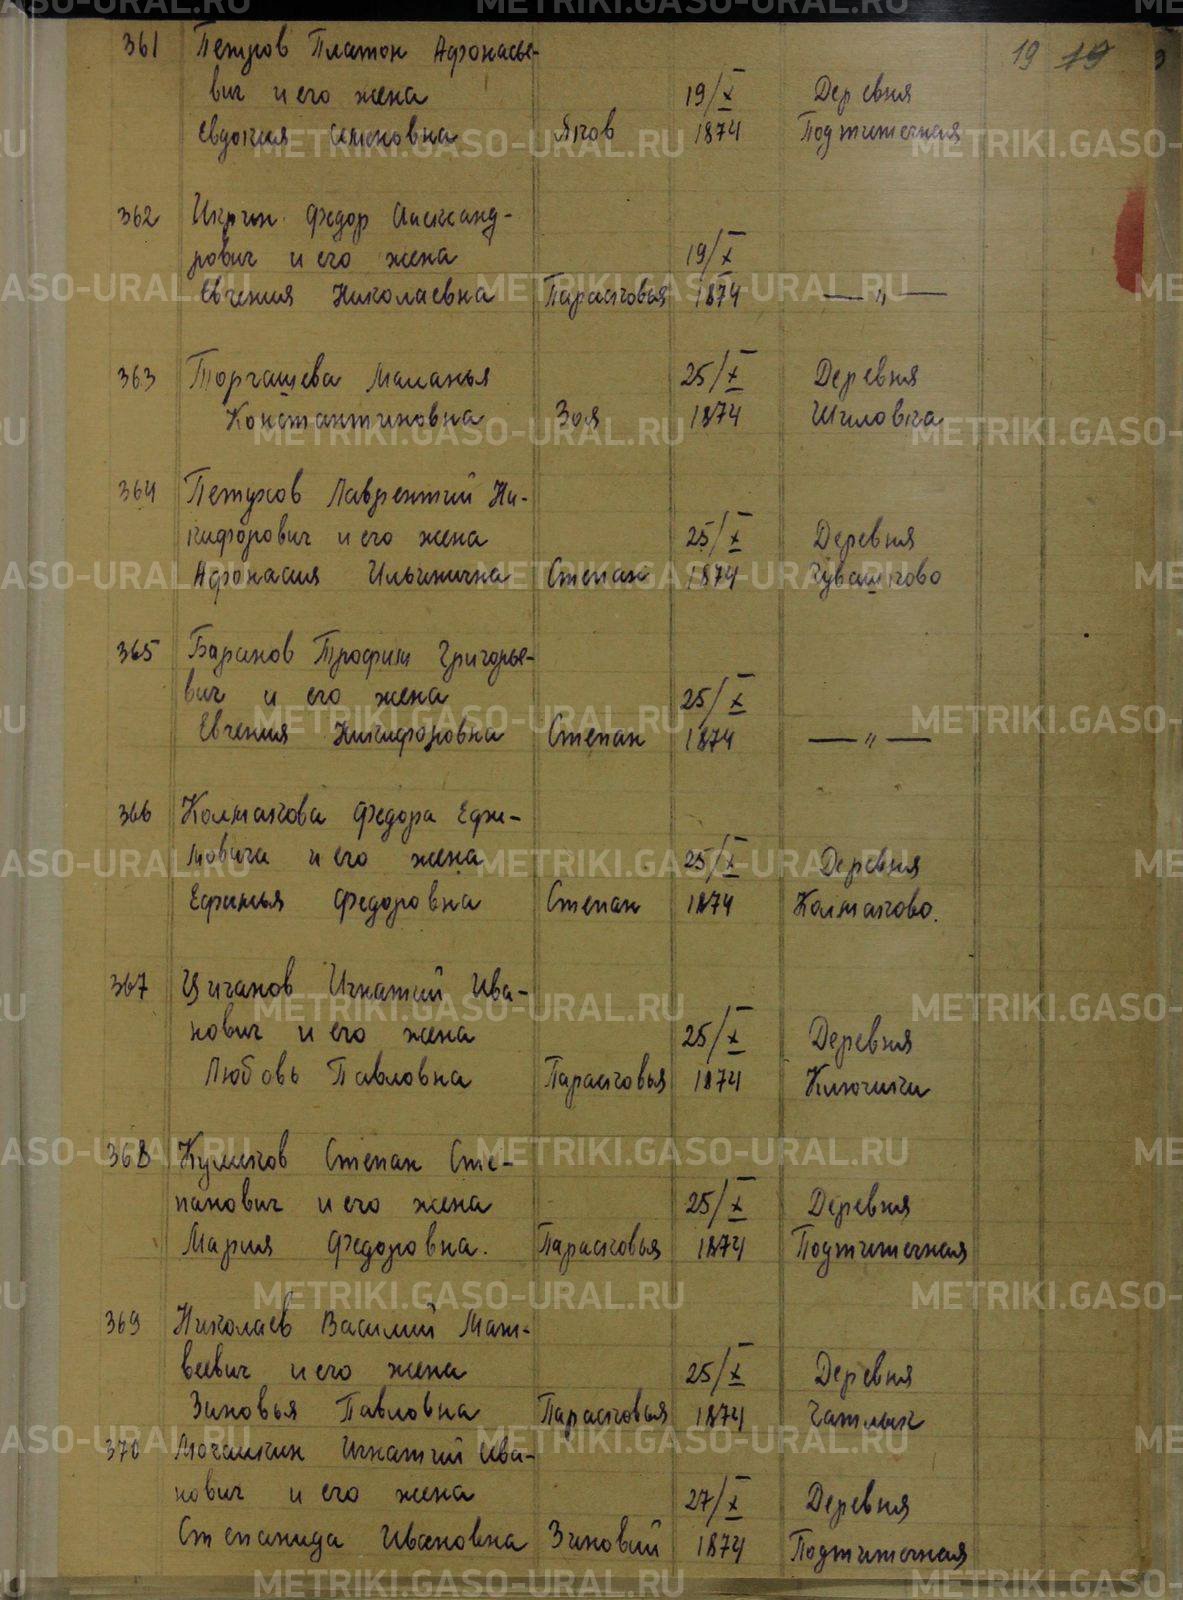 19 19
361 Петров Платон Афонасье-
вич и его жена 19/X Деревня
Евдокия Семеновна Яков 1874 Подтитечная
362 Федор Александ-
рович и его жена 19/X
Евгения Николаевна Парасковья 1874 — " —
363 Торгашева Маланья 25/X Деревня
Константиновна Зоя 1874 Шиловка
364 Петухов Лаврентий Ни-
кифорович и его жена 25/X Деревня
Афонасия Ильинична Степан 1874 Чувашково
365 Баранов Трофим Григорье-
вич и его жена 25/X
Евгения Никифоровна Степан 1874 — " —
366 Колмакова Федора Ефи-
мовича и его жена 25/X Деревня
Ефимья Федоровна Степан 1874 Колмаково.
367 Циганов Игнатий Ива-
нович и его жена 25/X Деревня
Любовь Павловна Парасковья 1874 Ключики
368 Куликов Степан Сте-
панович и его жена 25/X Деревня
Мария Федоровна. Парасковья 1874 Подтитечная
369 Николаев Василий Мат-
веевич и его жена 25/X Деревня
Зиновья Павловна Парасковья 1874 Чатлык
370 Мочалкин Игнатий Ива-
нович и его жена 27/X Деревня
Степанида Ивановна Зиновий 1874 Подтитечная
METRIKI.GASO-URAL.RU